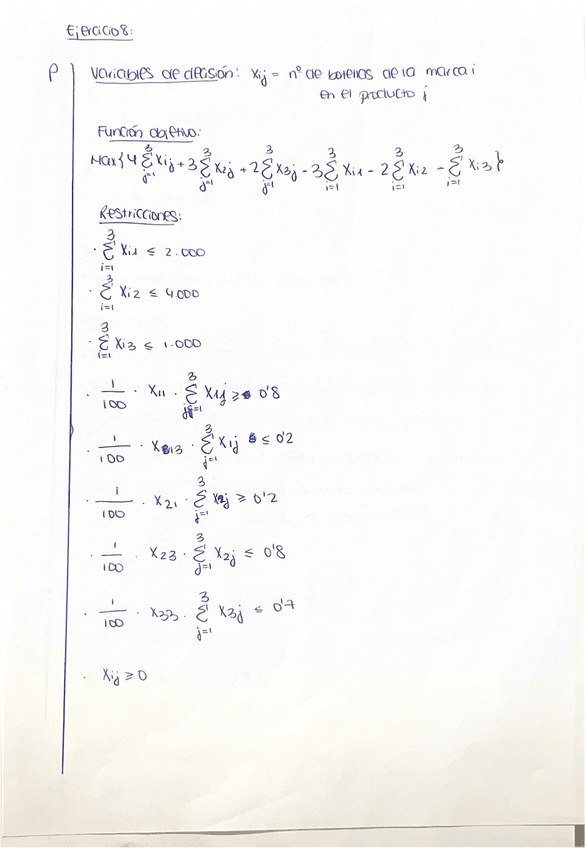 Ejercicio 8:
P Variables de decisión: Xij = nº de botellas de la marca i
en el producto j
Función objetivo:
Max{4 3∑j=1 Xij + 3 3∑j=1 X2j + 2 3∑j=1 X3j - 3 3∑i=1 Xi1 - 2 3∑i=1 Xi2 - 3∑i=1 Xi3}
Restricciones:
· 3∑i=1 Xi1 ≤ 2.000
· 3∑i=1 Xi2 ≤ 4.000
· 3∑i=1 Xi3 ≤ 1.000
· 1/100 · X11 · 3∑j=1 X1j ≥ 0'8
· 1/100 · X13 · 3∑j=1 X1j ≤ 0'2
· 1/100 · X21 · 3∑j=1 X2j ≥ 0'2
· 1/100 · X23 · 3∑j=1 X2j ≤ 0'8
· 1/100 · X33 · 3∑j=1 X3j ≤ 0'7
· Xij ≥ 0